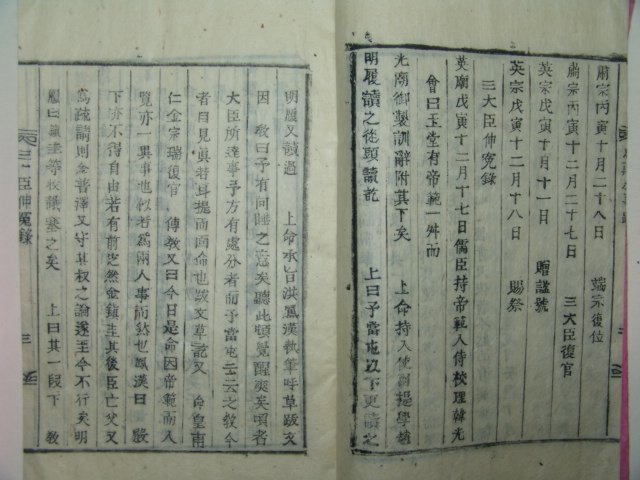 肅宗丙寅十一月二十八日 端宗復位
肅宗丙寅十二月二十七日 三大臣復官
英宗戊寅十月十一日 贈謚號
英宗戊寅十二月十八日 賜祭
三大臣伸寃錄
英廟戊寅十二月十七日儒臣持帝範入侍校理韓光
會曰玉堂有帝範一弁而
光廟御製訓辭附其下矣 上命持入使副提學趙
明履讀之從頭讀訖 上曰予當坐以下更讀之
明履又讀過 上命承旨洪鳳漢執筆呼草跋文
因 敎曰予有問睡之意矣聽此頓覺醒爽矣頃者
大臣所達事予方有處分者而予當坐云云之敎今
者曰見矣若耳提而面命也跋文草訖又 命皇甫
仁金宗瑞復官 傳敎又曰今日是命因帝範而入
覽亦一異事也似若爲兩人事而然也鳳漢曰 殿
下亦不得自由若有前定然金鎭圭其後臣亡父又
爲疏請則金普澤又守其權之論遂至今不行矣明
履曰鎭圭等校議塞之矣 上曰其一段下 敎
三大臣伸寃錄
三